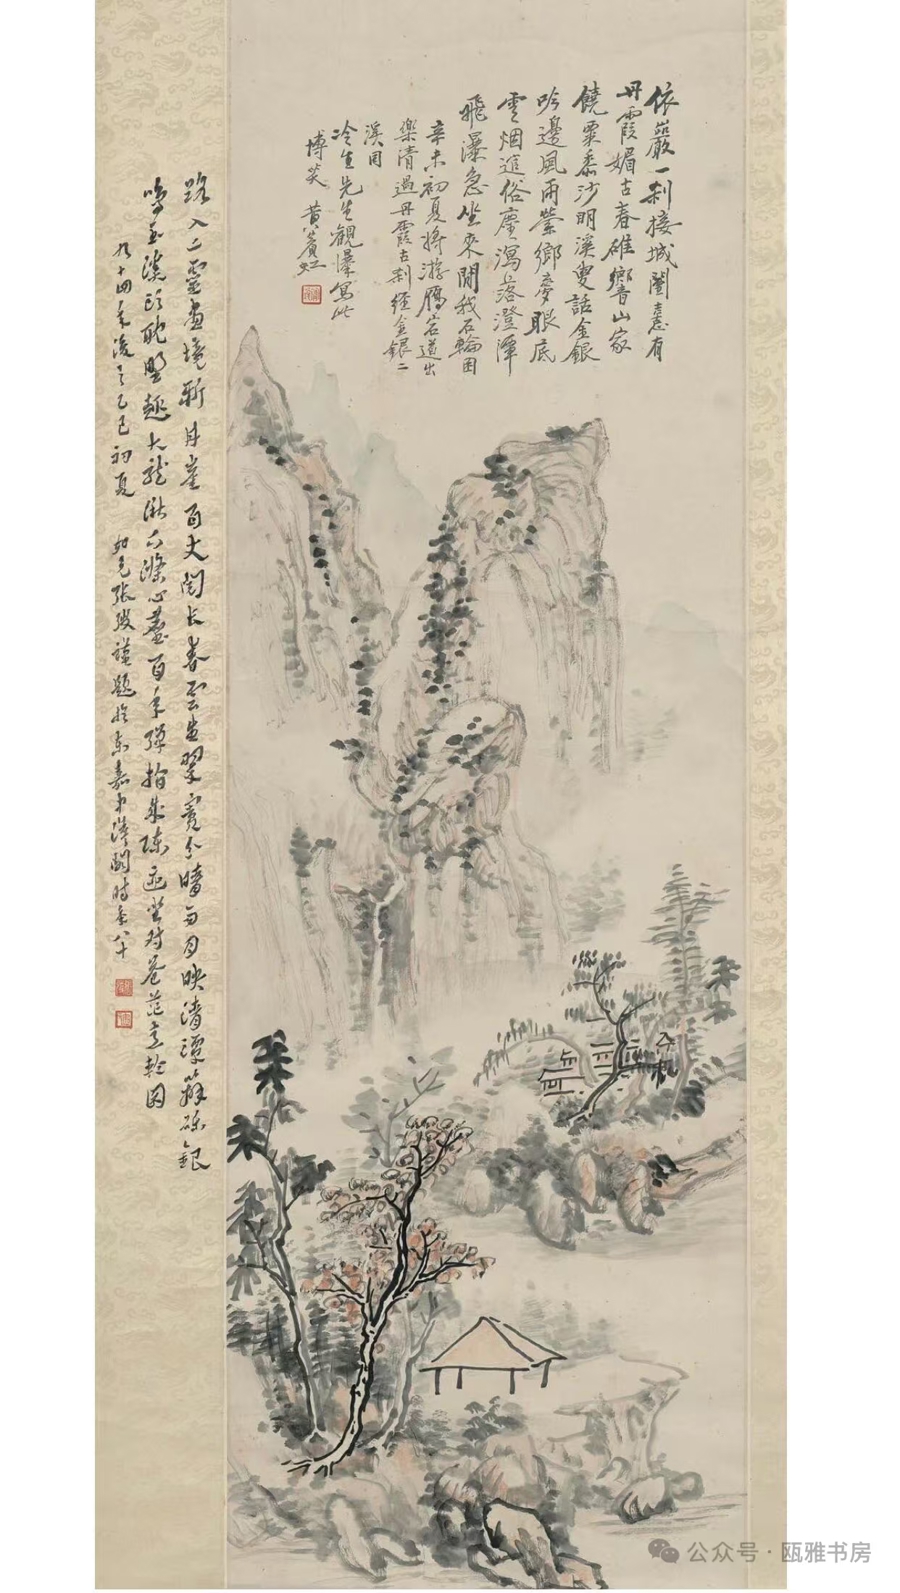 依巖一刹接城闉憙有
丹霞媚古春碓響山家
饒粟黍沙明溪叟話金銀
吟邊風雨縈鄉夢眼底
雲烟進俗塵瀉落澄潭
飛瀑急坐來閒我石輪囷
辛未初夏將游雁宕道出
樂清過丹霞古刹經金銀二
溪用
冷生先生觀瀑寫此
博笑 黃賓虹
路入二靈畫境新 百丈 長春雲生翠 映清潭 礫銀
野趣大龍湫 滌心 百年彈指成陳迹坐對蒼茫意輪囷
九十四年後之乙巳初夏 張 謹題於永嘉 時年八十
公众号·瓯雅书房